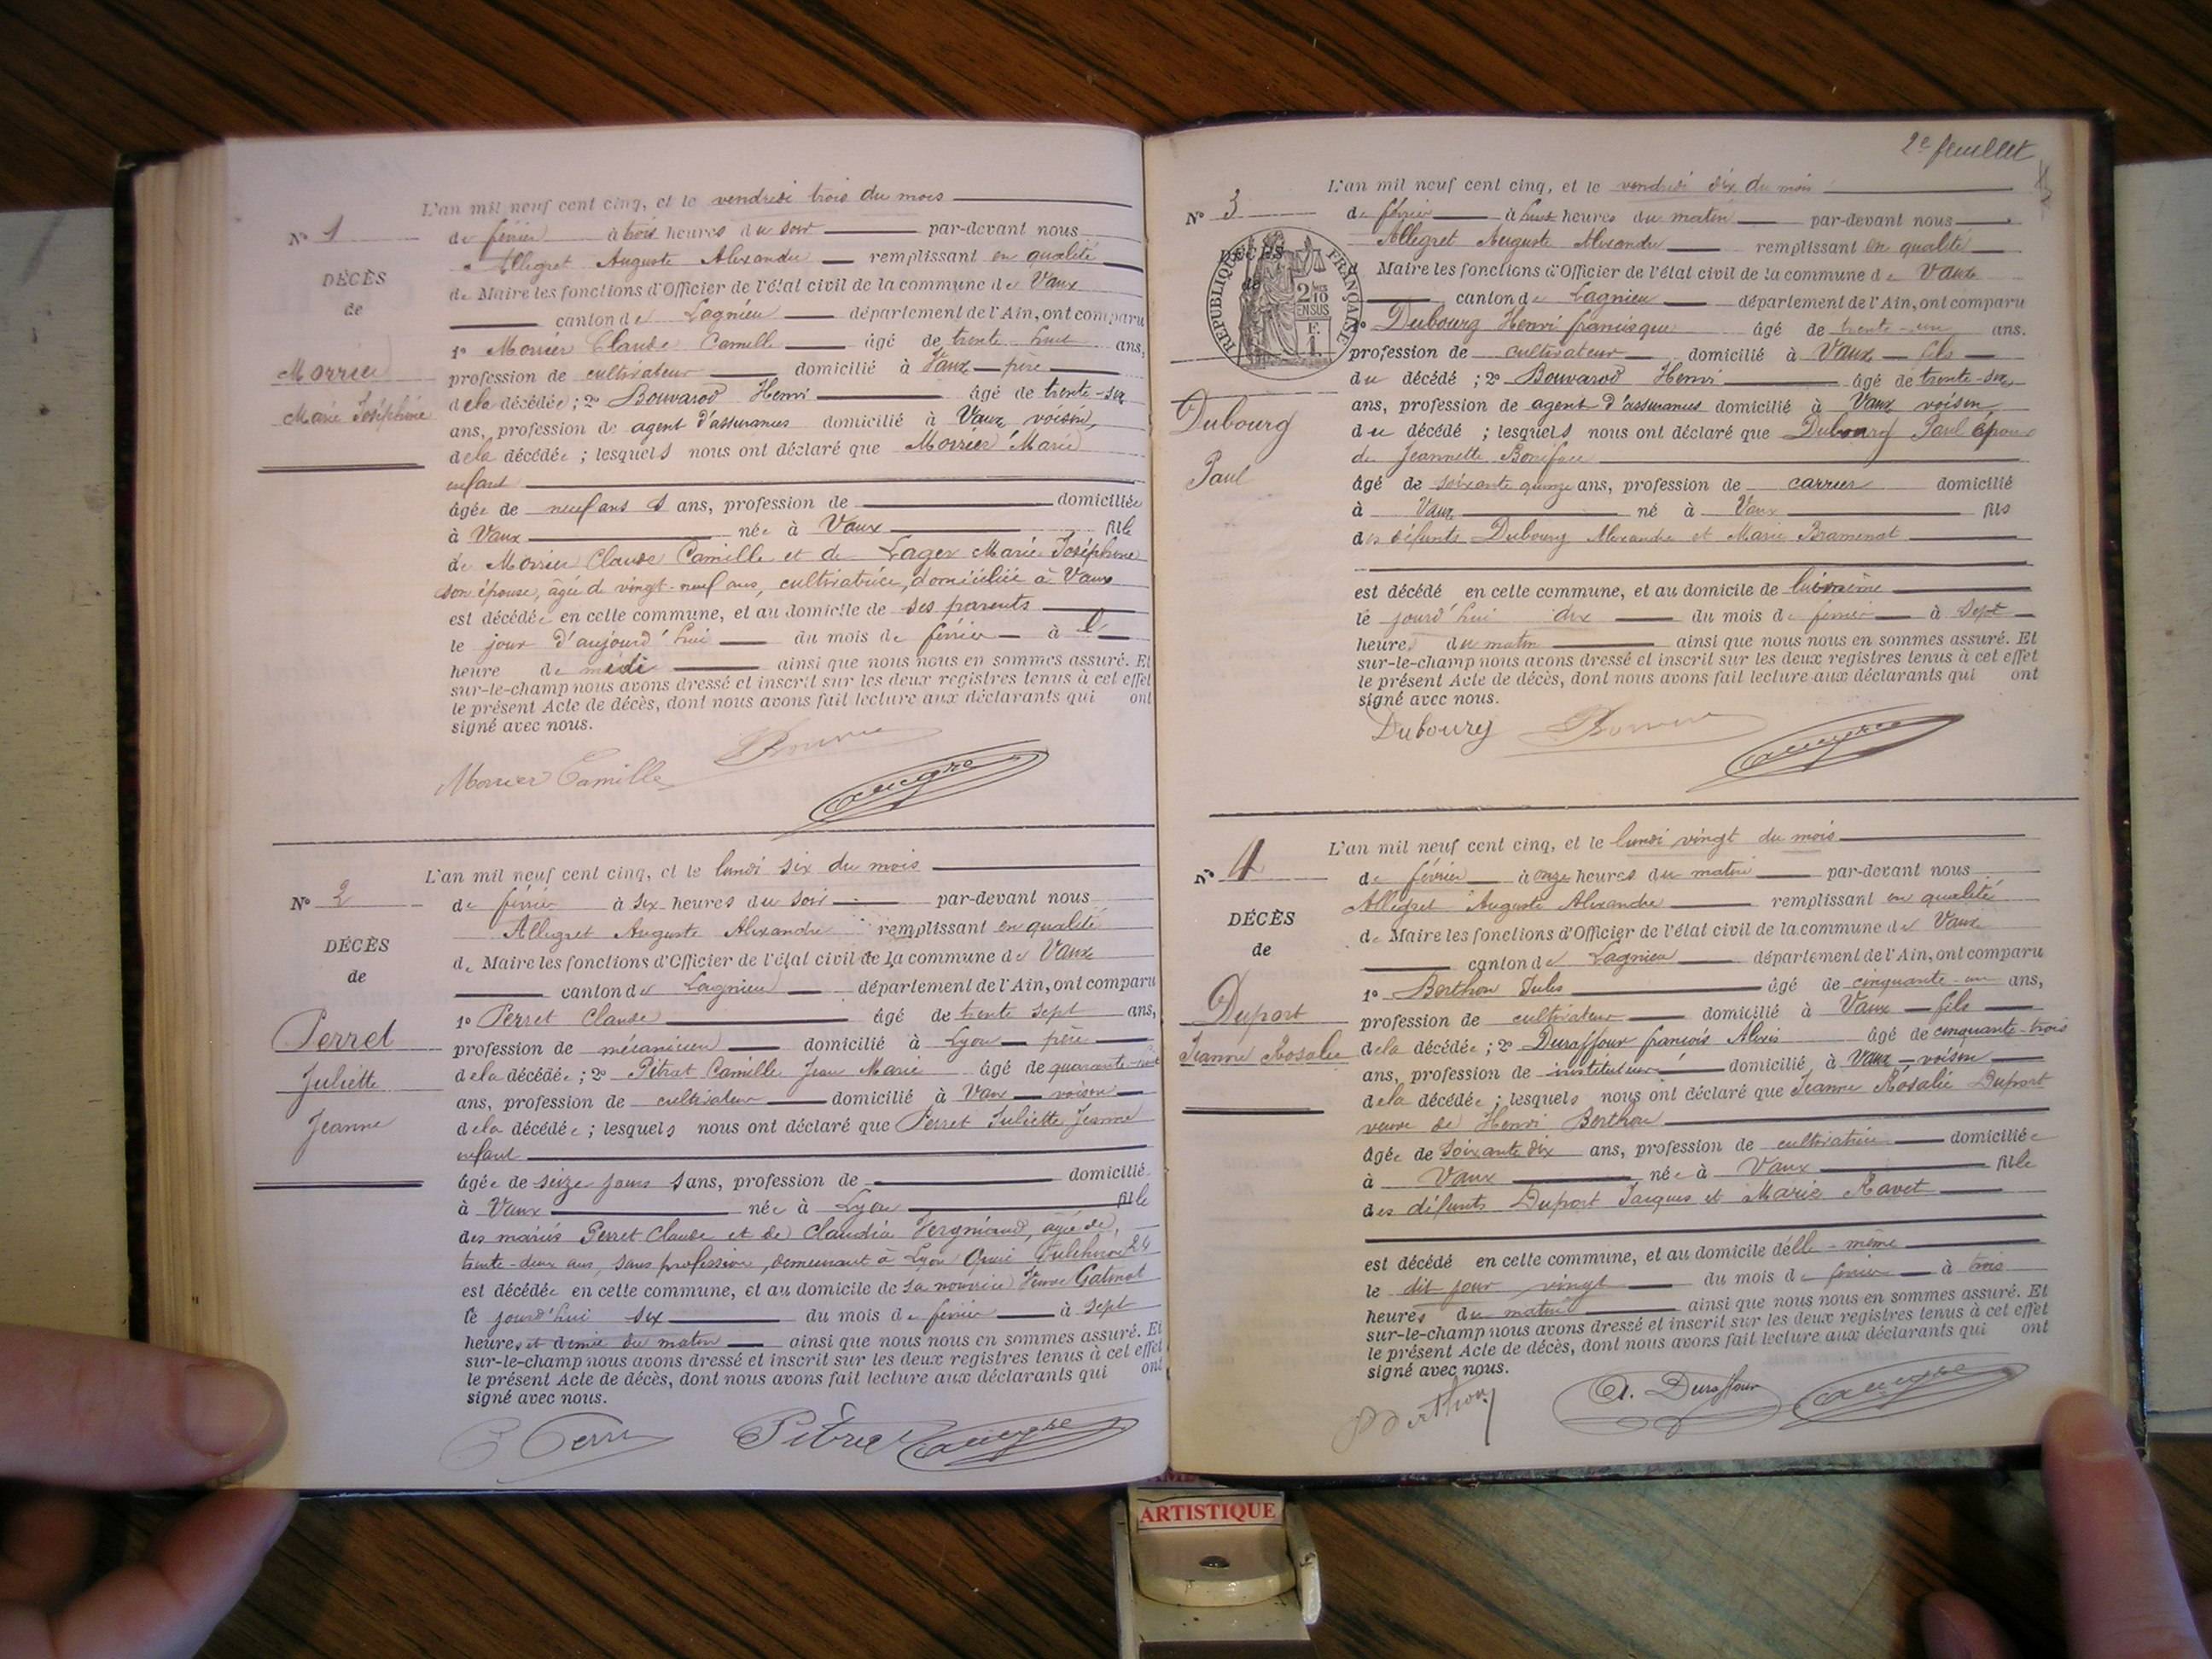 L'an mil neuf cent cinq, et le vendredi trois du mois
N° 1
de février à trois heures du soir par-devant nous
Allegret Auguste Alexandre remplissant en qualité
DÉCÈS
de Maire les fonctions d'Officier de l'état civil de la commune de Vaux
de
canton de Lagnieu département de l'Ain, ont comparu
1° Morrier Claude Camille âgé de trente huit ans,
Morrier
profession de cultivateur domicilié à Vaux père
Marie Joséphine
de la décédée ; 2° Bouvarod Henri âgé de trente-six
ans, profession de agent d'assurances domicilié à Vaux, voisin,
de la décédée ; lesquels nous ont déclaré que Morrier Marie
enfant
âgée de neuf ans ans, profession de domiciliée
à Vaux née à Vaux fille
de Morrier Claude Camille et de Lager Marie Joséphine
son épouse, âgée de vingt-neuf ans, cultivatrice, domiciliée à Vaux
est décédée en cette commune, et au domicile de ses parents
le jour d'aujourd'hui du mois de février à l'
heure de midi ainsi que nous nous en sommes assuré. Et
sur-le-champ nous avons dressé et inscrit sur les deux registres tenus à cet effet
le présent Acte de décès, dont nous avons fait lecture aux déclarants qui ont
signé avec nous.
Morrier Camille
L'an mil neuf cent cinq, et le lundi six du mois
N° 2
de février à six heures du soir par-devant nous
Allegret Auguste Alexandre remplissant en qualité
DÉCÈS
de Maire les fonctions d'Officier de l'état civil de la commune de Vaux
de
canton de Lagnieu département de l'Ain, ont comparu
1° Perret Claude âgé de trente sept ans,
Perret
profession de mécanicien domicilié à Lyon père
Juliette
de la décédée ; 2° Pitrat Camille Jean Marie âgé de quarante-neuf
ans, profession de cultivateur domicilié à Vaux voisin
Jeanne
de la décédée ; lesquels nous ont déclaré que Perret Juliette Jeanne
enfant
âgée de seize jours ans, profession de domicilié
à Vaux née à Lyon fille
des mariés Perret Claude et de Claudia Vergniaud, âgée de
trente-deux ans, sans profession, demeurant à Lyon Quai 24
est décédée en cette commune, et au domicile de sa nourrice Veuve Gatinot
le jourd'hui six du mois de février à sept
heures et demie du matin ainsi que nous nous en sommes assuré. Et
sur-le-champ nous avons dressé et inscrit sur les deux registres tenus à cet effet
le présent Acte de décès, dont nous avons fait lecture aux déclarants qui ont
signé avec nous.
2e feuillet
L'an mil neuf cent cinq, et le vendredi dix du mois
N° 3
de février à huit heures du matin par-devant nous
Allegret Auguste Alexandre remplissant en qualité
DÉCÈS
de
RÉPUBLIQUE FRANÇAISE
2/10 EN SUS
F. 1.
Maire les fonctions d'Officier de l'état civil de la commune de Vaux
canton de Lagnieu département de l'Ain, ont comparu
1° Dubourg Henri francisque âgé de trente-un ans.
profession de cultivateur domicilié à Vaux fils
du décédé ; 2° Bouvarod Henri âgé de trente-six
ans, profession de agent d'assurances domicilié à Vaux voisin
Dubourg
du décédé ; lesquels nous ont déclaré que Dubourg Paul époux
de Jeannette Boniface
Paul
âgé de soixante quinze ans, profession de carrier domicilié
à Vaux né à Vaux fils
des défunts Dubourg Alexandre et Marie Bramenat
est décédé en cette commune, et au domicile de lui-même
le jourd'hui dix du mois de février à sept
heures du matin ainsi que nous nous en sommes assuré. Et
sur-le-champ nous avons dressé et inscrit sur les deux registres tenus à cet effet
le présent Acte de décès, dont nous avons fait lecture aux déclarants qui ont
signé avec nous.
Dubourg
L'an mil neuf cent cinq, et le lundi vingt du mois
N° 4
de février à onze heures du matin par-devant nous
Allegret Auguste Alexandre remplissant en qualité
DÉCÈS
de Maire les fonctions d'Officier de l'état civil de la commune de Vaux
de
canton de Lagnieu département de l'Ain, ont comparu
1° Berthon Jules âgé de cinquante-un ans,
Duport
profession de cultivateur domicilié à Vaux fils
Jeanne Rosalie
de la décédée ; 2° Duraffour françois Alexis âgé de cinquante-trois
ans, profession de instituteur domicilié à Vaux, voisin
de la décédée ; lesquels nous ont déclaré que Jeanne Rosalie Duport
veuve de Henri Berthon
âgée de soixante dix ans, profession de cultivatrice domiciliée
à Vaux née à Vaux fille
des défunts Duport Jacques et Marie Ravet
est décédé en cette commune, et au domicile d'elle-même
le dit jour vingt du mois de février à trois
heures du matin ainsi que nous nous en sommes assuré. Et
sur-le-champ nous avons dressé et inscrit sur les deux registres tenus à cet effet
le présent Acte de décès, dont nous avons fait lecture aux déclarants qui ont
signé avec nous.
Berthon A. Duraffour
ARTISTIQUE